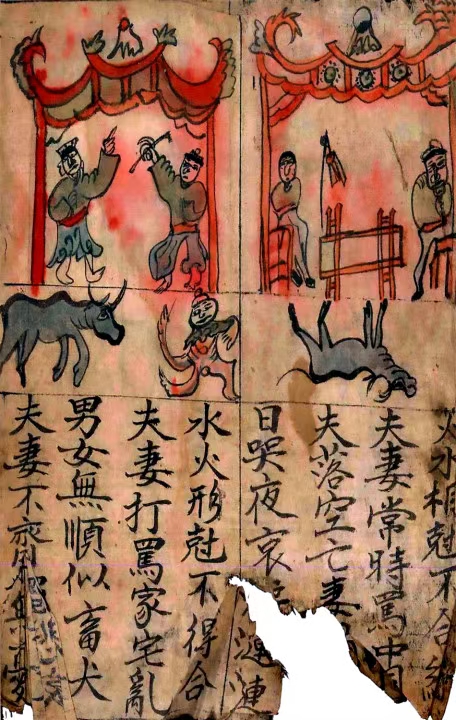 火水相尅不合
夫妻常時罵
夫落空亡妻
日哭夜哀 漣漣
水火形尅不得合
夫妻打罵家宅亂
男女無順似畜犬
夫妻不